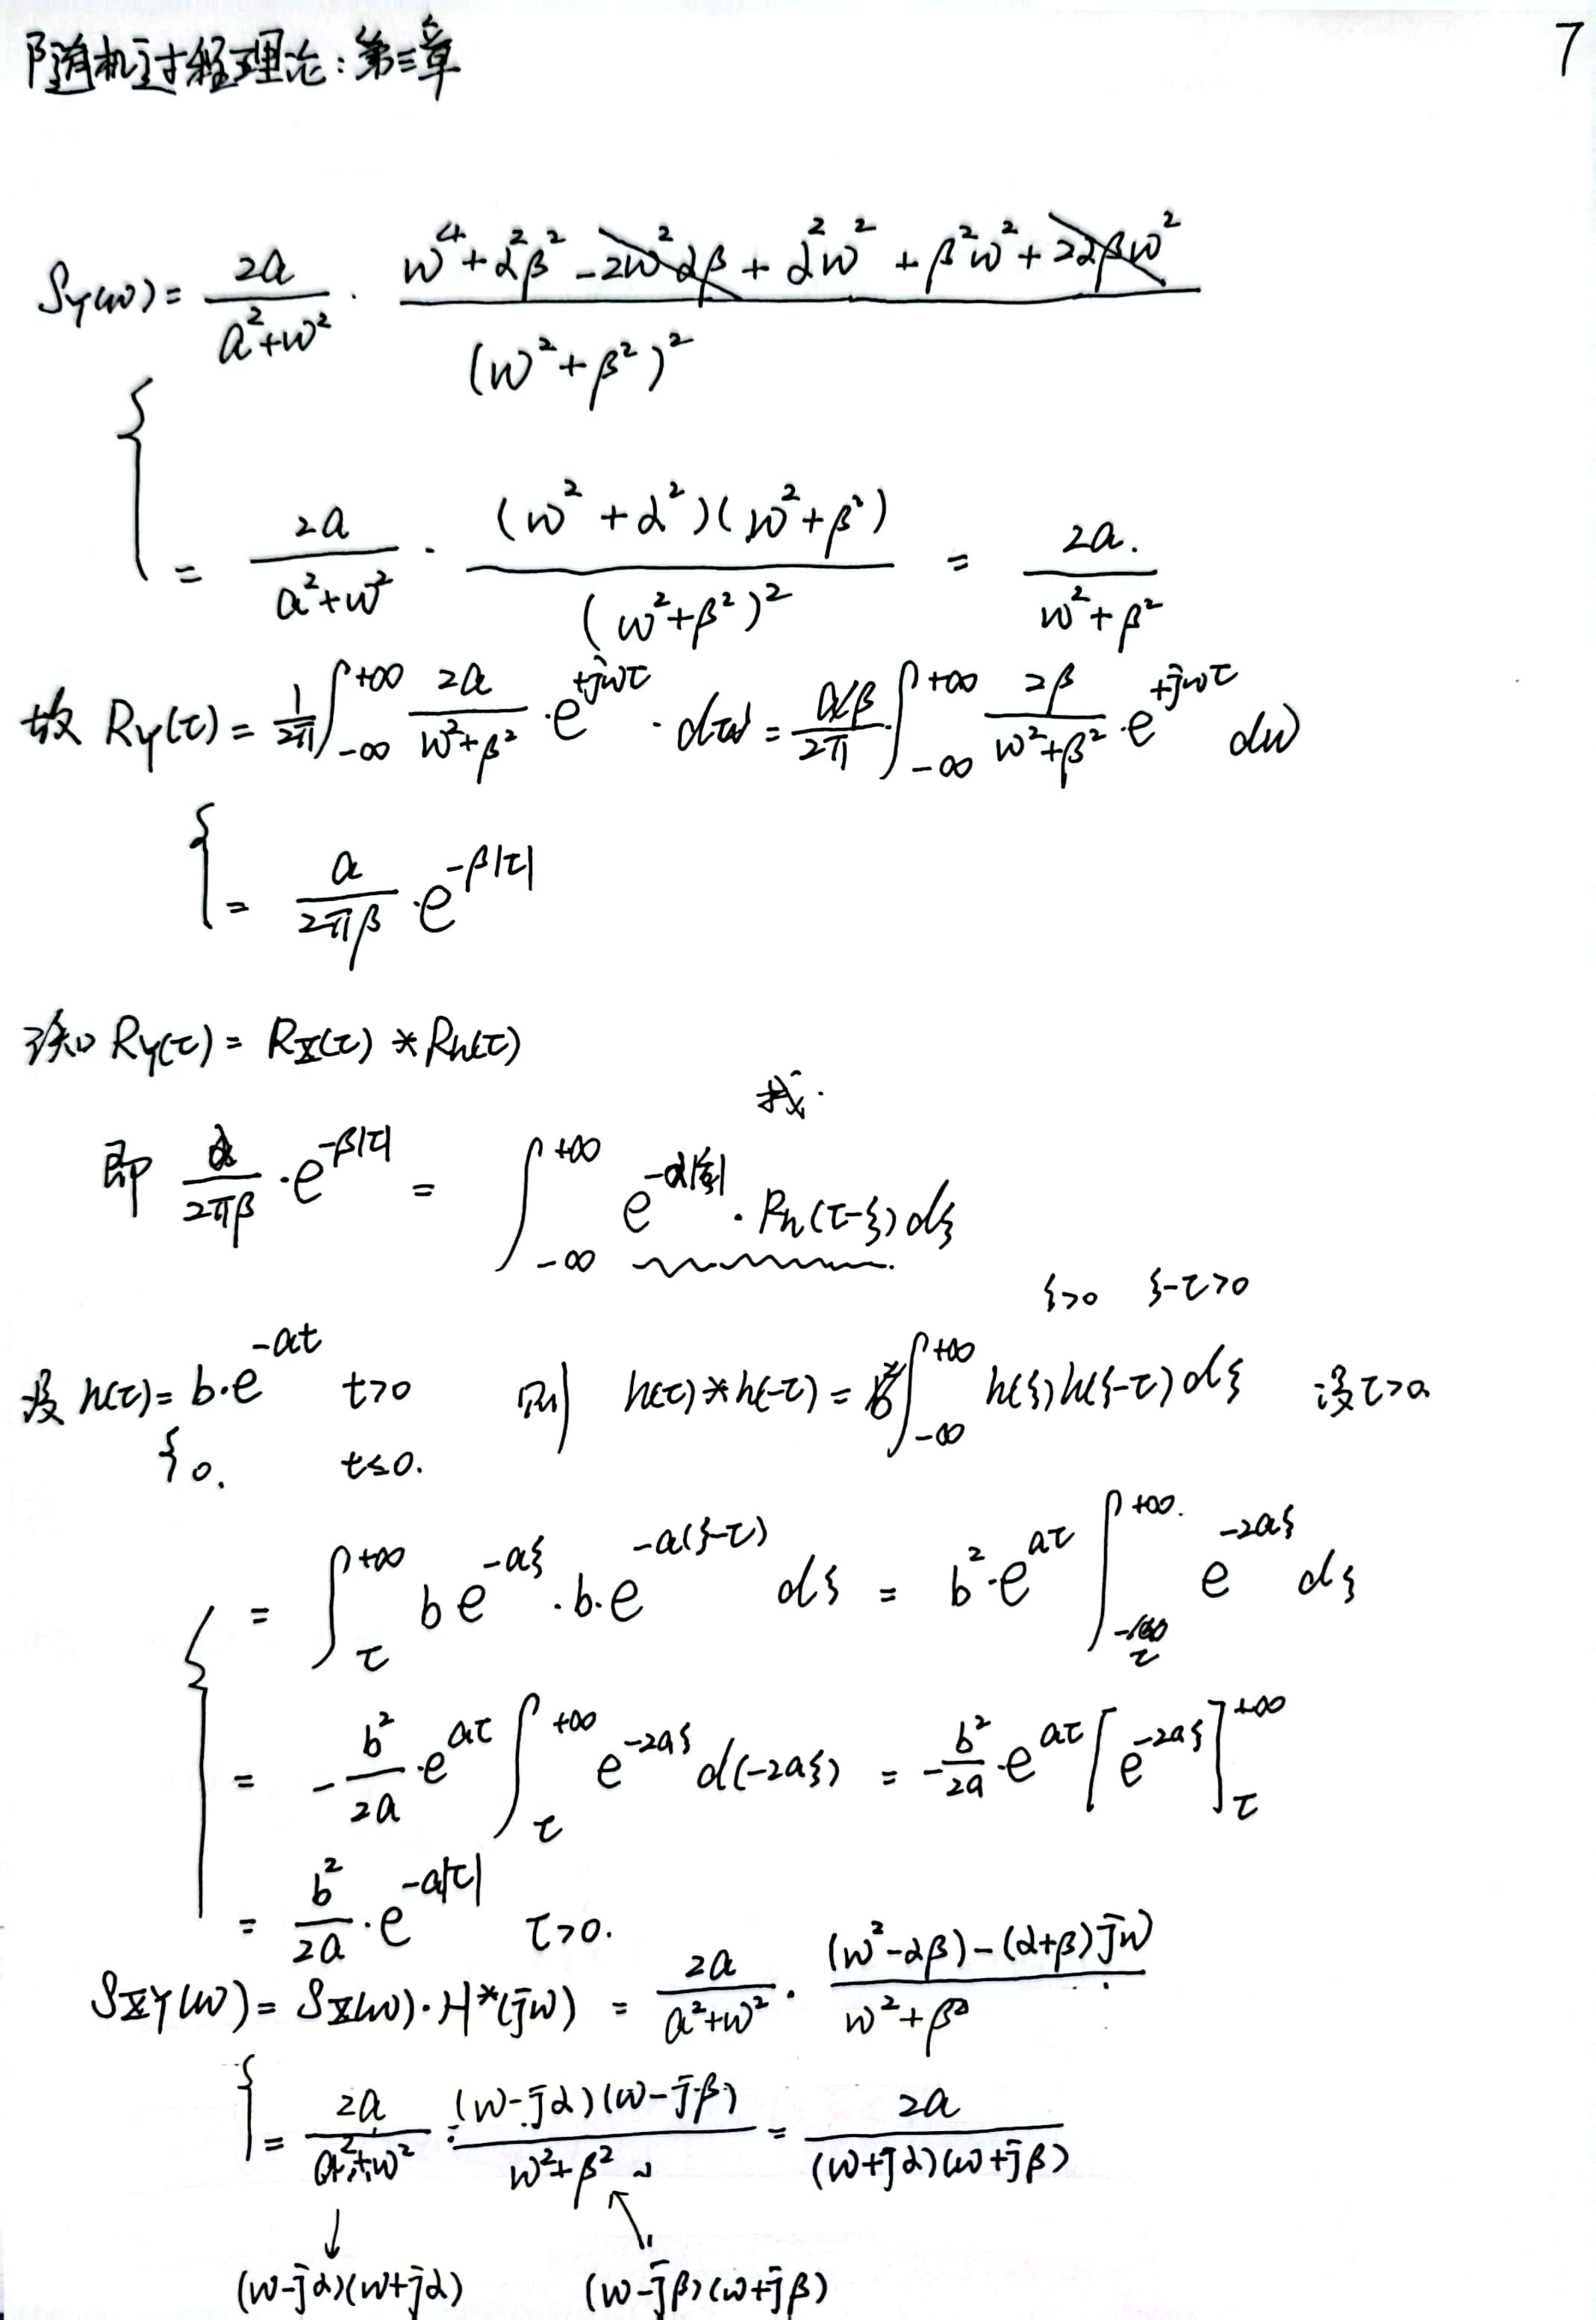 随机过程理论：第三章
7
S_Y(ω) = \frac{2a}{a^2+ω^2} · \frac{ω^4+α^2β^2-2ω^2αβ+α^2ω^2+β^2ω^2+2αβω^2}{(ω^2+β^2)^2}
= \frac{2a}{a^2+ω^2} · \frac{(ω^2+α^2)(ω^2+β^2)}{(ω^2+β^2)^2} = \frac{2a.}{ω^2+β^2}
故 R_Y(τ) = \frac{1}{2π}∫_{-∞}^{+∞} \frac{2a}{ω^2+β^2} · e^{+jωτ} · dω = \frac{α/β}{2π}·∫_{-∞}^{+∞} \frac{2β}{ω^2+β^2} · e^{+jωτ} dω
= \frac{a}{2πβ} · e^{-β|τ|}
R_Y(τ) = R_X(τ) * R_h(τ)
即 \frac{α}{2πβ} · e^{-β|τ|} = ∫_{-∞}^{+∞} e^{-α|ξ|} · R_h(τ-ξ) dξ
ξ>0 ξ-τ>0
设 h(τ) = b·e^{-at} t>0 则 h(τ)*h(-τ) = ∫_{-∞}^{+∞} h(ξ)h(ξ-τ)dξ 设τ>0
0. t≤0.
= ∫_{τ}^{+∞} be^{-aξ} · b·e^{-a(ξ-τ)} dξ = b^2·e^{aτ} ∫_{τ}^{+∞.} e^{-2aξ} dξ
= -\frac{b^2}{2a} · e^{aτ} ∫_{τ}^{+∞} e^{-2aξ} d(-2aξ) = -\frac{b^2}{2a} · e^{aτ} [e^{-2aξ}]_{τ}^{+∞}
= \frac{b^2}{2a} · e^{-a|τ|} τ>0.
S_{XY}(ω) = S_X(ω) · H*(jω) = \frac{2a}{a^2+ω^2} · \frac{(ω^2-αβ)-(α+β)jω}{ω^2+β^2}
= \frac{2a}{a^2+ω^2} · \frac{(ω-jα)(ω-jβ)}{ω^2+β^2} = \frac{2a}{(ω+jα)(ω+jβ)}
(ω-jα)(ω+jα) (ω-jβ)(ω+jβ)